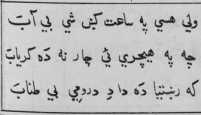 ولي هسي په ساعت کښ شي بي آب
چه په هيچري ئي چار نه ده کرياب
که رښتيا ده دا د دروهي بي طناب